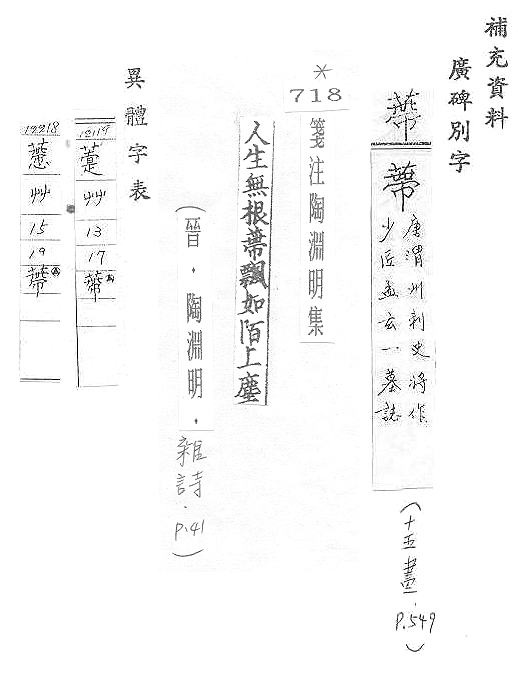 補充資料
廣碑別字
蔕
唐渭州刺史將作
少匠孟玄一墓誌
(十五畫.P.549)
*
718
箋注陶淵明集
人生無根蔕飄如陌上塵
(晉．陶淵明．雜詩．P.41)
異體字表
12119
艸
13
17
蔕
12218
艸
15
19